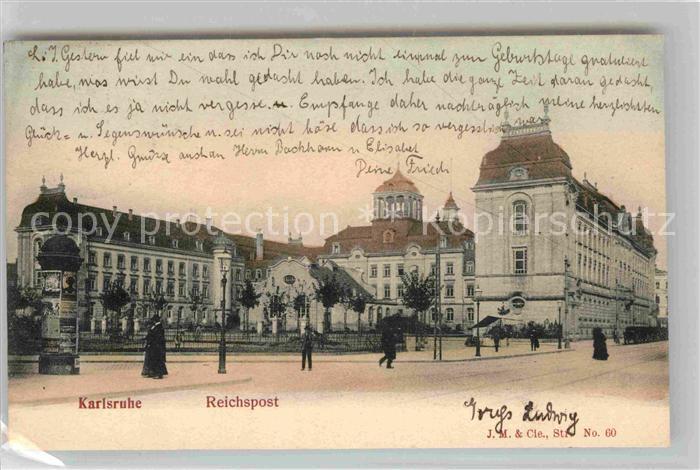 L. J. Gestern fiel mir ein dass ich Dir noch nicht einmal zum Geburtstage gratuliert
habe, was wirst Du wohl gedacht haben. Ich habe die ganze Zeit daran gedacht,
dass ich es ja nicht vergesse. u. Empfange daher nachträglich meine herzlichsten
Glück- u. Segenswünsche u. sei nicht böse dass ich so vergesslich war
Herzl. Grüsse auch an Herrn u Elisabet
Deine Friedl
copyright by kopierschutz.net
Karlsruhe
Reichspost
Ludwig
J. M. & Cie., Str. No. 60